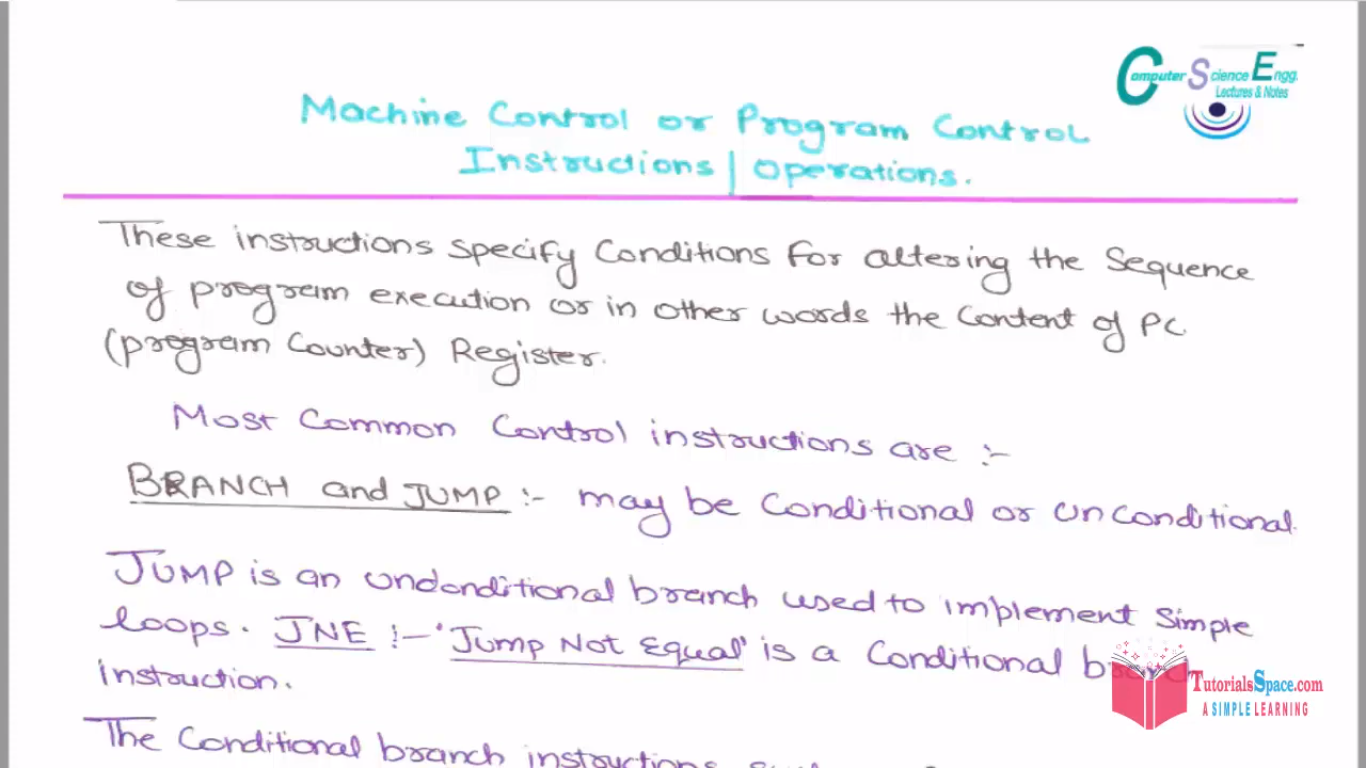 Computer Science Engg.
Lectures & Notes
Machine Control or Program Control
Instructions | Operations.
These instructions specify Conditions for altering the Sequence
of program execution or in other words the Content of PC
(program Counter) Register.
Most Common Control instructions are :-
BRANCH and JUMP :- may be Conditional or unconditional.
JUMP is an unconditional branch used to implement Simple
loops. JNE :- 'Jump Not Equal' is a Conditional branch
instruction.
TutorialsSpace.com
A SIMPLE LEARNING
The Conditional branch instructions